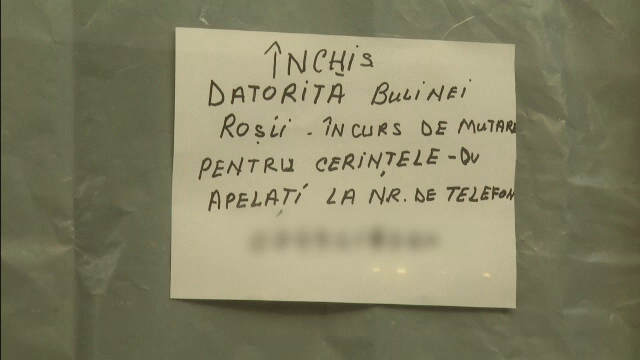 ÎNCHIS
DATORITĂ BULINEI
ROȘII - ÎN CURS DE MUTARE
PENTRU CERINȚELE-DV
APELATI LA NR. DE TELEFON